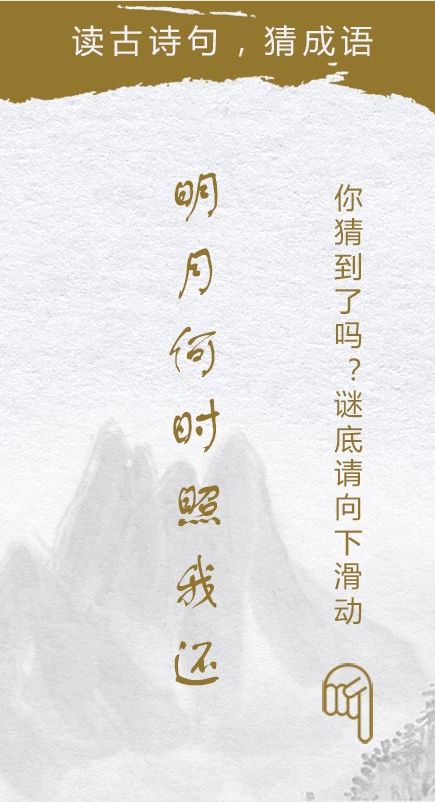 读古诗句，猜成语
明月何时照我还
你猜到了吗？谜底请向下滑动